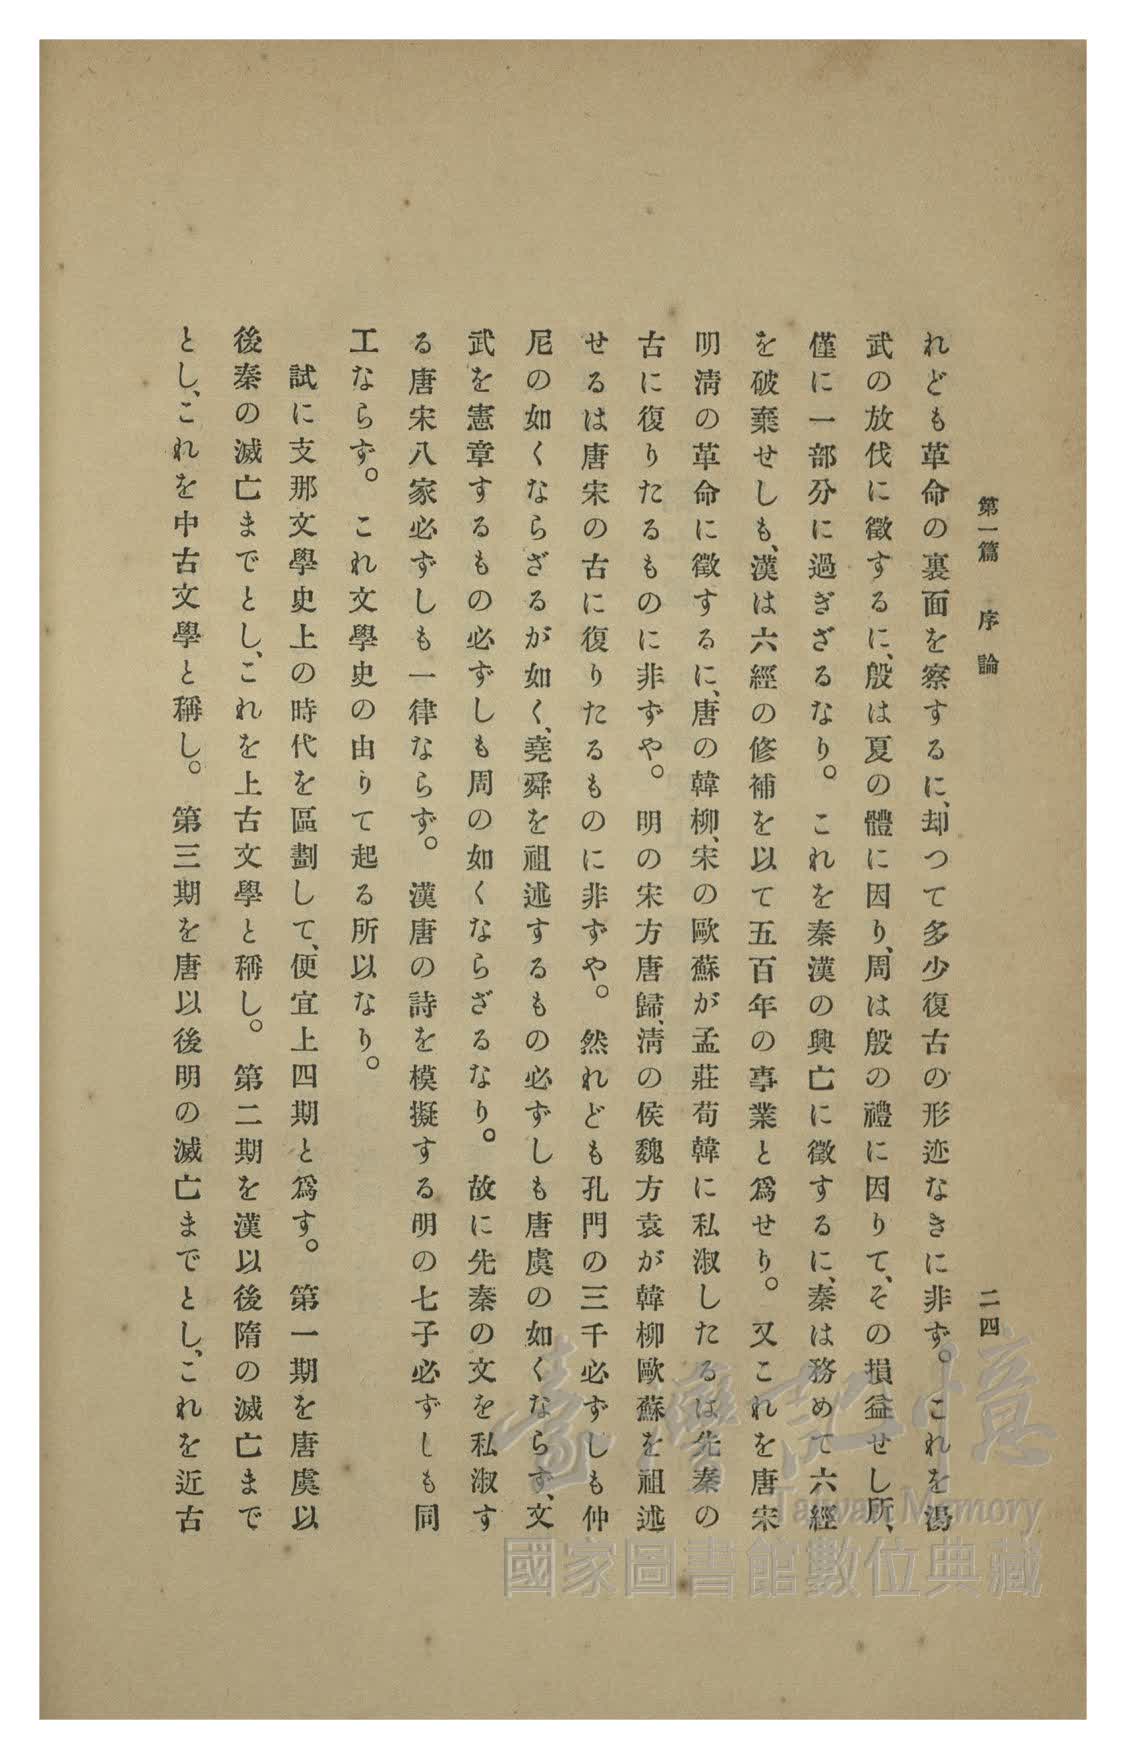 第一篇　序論　二四
れども革命の裏面を察するに、却つて多少復古の形迹なきに非ず。これを湯
武の放伐に徵するに、殷は夏の體に因り、周は殷の禮に因りて、その損益せし所、
僅に一部分に過ぎざるなり。これを秦漢の興亡に徵するに、秦は務めて六經
を破棄せしも、漢は六經の修補を以て五百年の事業と爲せり。又これを唐宋
明淸の革命に徵するに、唐の韓柳、宋の歐蘇が孟莊荀韓に私淑したるは先秦の
古に復りたるものに非ずや。明の宋方唐歸、淸の侯魏方袁が韓柳歐蘇を祖述
せるは唐宋の古に復りたるものに非ずや。然れども孔門の三千必ずしも仲
尼の如くならざるが如く、堯舜を祖述するもの必ずしも唐虞の如くならず、文
武を憲章するもの必ずしも周の如くならざるなり。故に先秦の文を私淑す
る唐宋八家必ずしも一律ならず。漢唐の詩を模擬する明の七子必ずしも同
工ならず。これ文學史の由りて起る所以なり。
試に支那文學史上の時代を區劃して、便宜上四期と爲す。第一期を唐虞以
後秦の滅亡までとし、これを上古文學と稱し。第二期を漢以後隋の滅亡まで
とし、これを中古文學と稱し。第三期を唐以後明の滅亡までとし、これを近古
臺灣記憶
Taiwan Memory
國家圖書館數位典藏